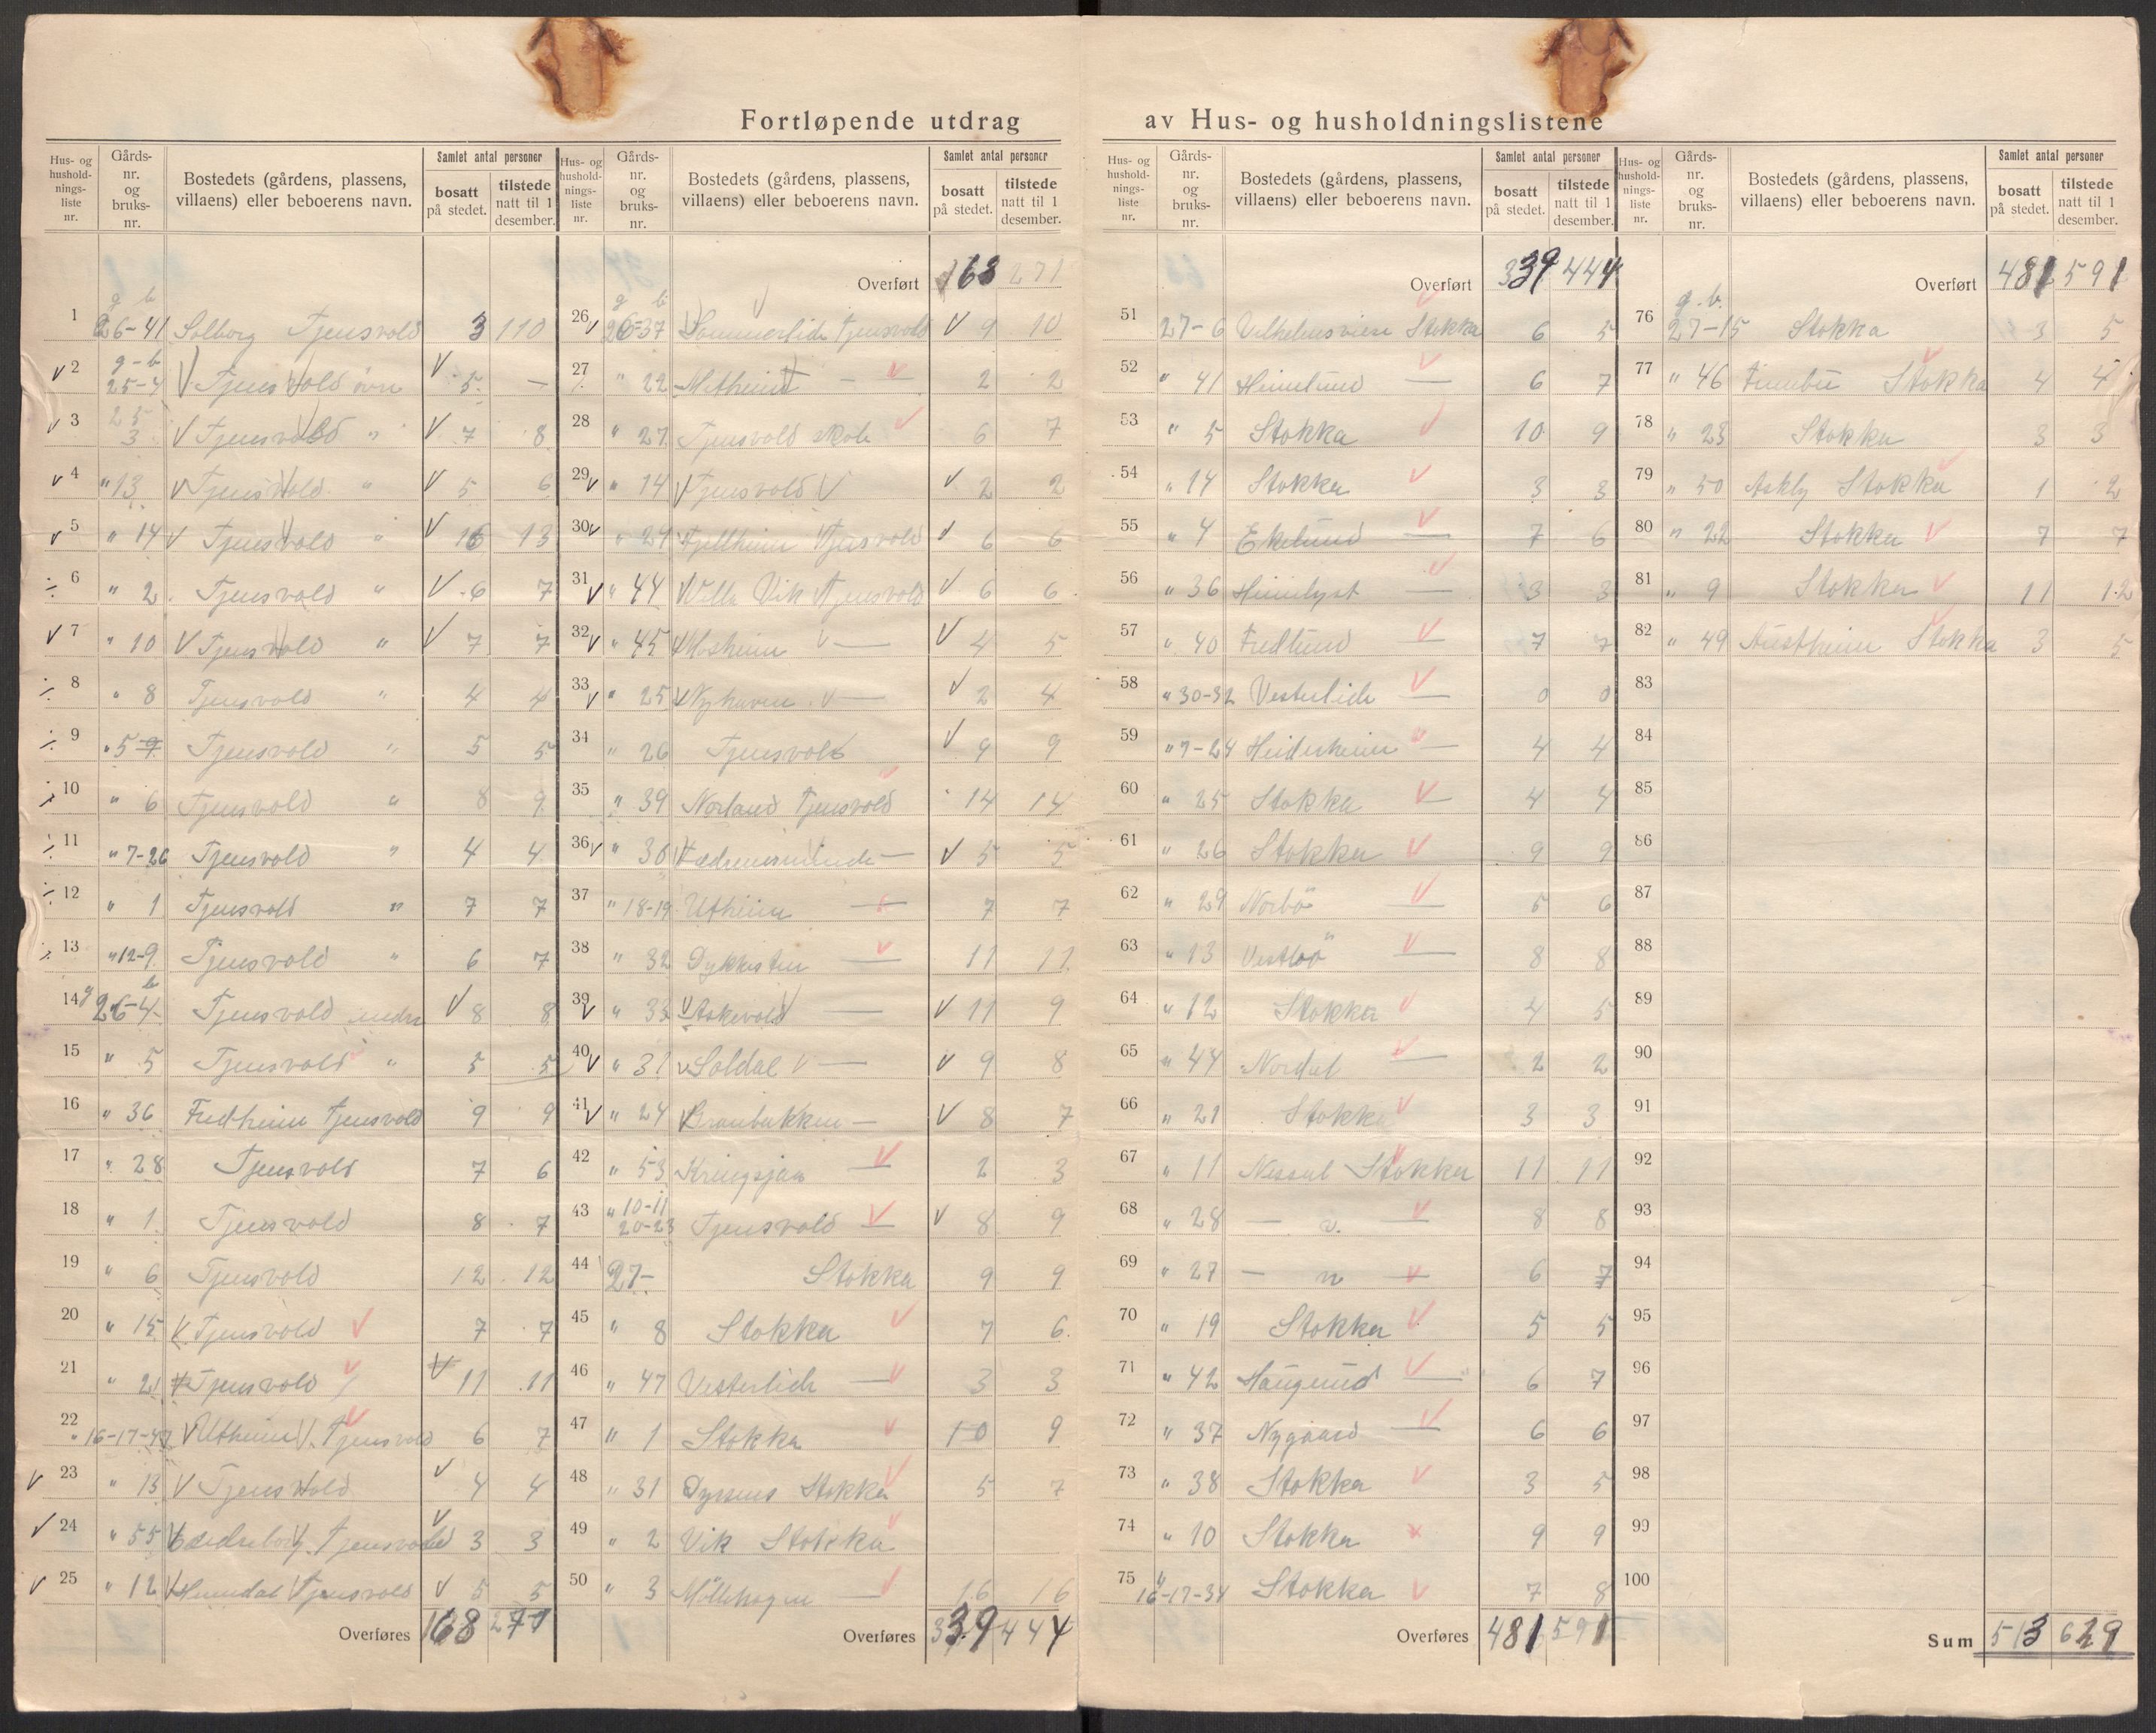 Fortløpende utdrag av Hus- og husholdningslistene
Hus- og hushold-nings-liste nr. | Gårds-nr. og bruks-nr. | Bostedets (gårdens, plassens, villaens) eller beboerens navn. | Samlet antal personer | bosatt på stedet. | tilstede natt til 1 desember.
g b
1 26-41 Solborg Tjensvold 3 110
g-b
2 25-4 Tjensvold övre 5 —
3 25 3 Tjensvold " 7 8
4 " 13 Tjensvold " 5 6
5 " 14 Tjensvold " 16 13
6 " 2 Tjensvold " 6 7
7 " 10 Tjensvold " 7 7
8 " 8 Tjensvold " 4 4
9 " 5 Tjensvold " 5 5
10 " 6 Tjensvold " 8 9
11 " 7-26 Tjensvold " 4 4
12 " 1 Tjensvold " 7 7
13 " 12-9 Tjensvold " 6 7
14 g 26-4 b Tjensvold nedre 8 8
15 " 5 Tjensvold " 5 5
16 " 36 Fredheim Tjensvold 9 9
17 " 28 Tjensvold 7 6
18 " 1 Tjensvold 8 7
19 " 6 Tjensvold 12 12
20 " 15 Tjensvold 7 7
21 " 21 Tjensvold 11 11
22 " 16-17-47 Utheim Tjensvold 6 7
23 " 13 Tjensvold 4 4
24 " 55 Tjensvold 3 3
25 " 12 Tjensvold 5 5
Overføres 168 271
Hus- og hushold-nings-liste nr. | Gårds-nr. og bruks-nr. | Bostedets (gårdens, plassens, villaens) eller beboerens navn. | Samlet antal personer | bosatt på stedet. | tilstede natt til 1 desember.
Overført 168 271
g b
26 26-37 Sommerlide Tjensvold 9 10
27 " 22 — 2 2
28 " 27 Tjensvold skole 6 7
29 " 14 Tjensvold 2 2
30 " 29 Fjellheim Tjensvold 6 6
31 " 44 Villa Vik Tjensvold 6 6
32 " 45 Moheim — 4 5
33 " 25 Nyhaven — 2 4
34 " 26 Tjensvold 9 9
35 " 39 Norland Tjensvold 14 14
36 " 30 Fædresminde — 5 5
37 " 18-19 Utheim — 7 7
38 " 32 — 11 11
39 " 33 Stokevold — 11 9
40 " 31 Soldal — 9 8
41 " 24 Branbakken — 8 7
42 " 53 Kringsjaa — 2 3
43 " 10-11 20-23 Tjensvold — 8 9
44 27- Stokka 9 9
45 " 8 Stokka 7 6
46 " 47 Vesterlide — 3 3
47 " 1 Stokka 10 9
48 " 31 Stokka 5 7
49 " 2 Vik Stokka
50 " 3 Möllehagen — 16 16
Overføres 339 444
Hus- og hushold-nings-liste nr. | Gårds-nr. og bruks-nr. | Bostedets (gårdens, plassens, villaens) eller beboerens navn. | Samlet antal personer | bosatt på stedet. | tilstede natt til 1 desember.
Overført 339 444
51 27-6 Stokka 6 5
52 " 41 Heimlund — 6 7
53 " 5 Stokka 10 9
54 " 14 Stokka 3 3
55 " 4 Ekelund — 7 6
56 " 36 Heimlyst — 3 3
57 " 40 Fredlund — 7 7
58 " 30-32 Vesterlide — 0 0
59 " 7-24 Heidesheim — 4 4
60 " 25 Stokka — 4 4
61 " 26 Stokka 9 9
62 " 29 Norbö — 5 6
63 " 13 Vestbö — 8 8
64 " 12 Stokka 4 5
65 " 44 Nordal — 2 2
66 " 21 Stokka 3 3
67 " 11 Stokka 11 11
68 " 28 — v. — 8 8
69 " 27 — n — 6 7
70 " 19 Stokka 5 5
71 " 42 Haugland — 6 7
72 " 37 Nygaard — 6 6
73 " 38 Stokka 3 5
74 " 10 Stokka 9 9
75 " 16-17-34 Stokka 7 8
Overføres 481 591
Hus- og hushold-nings-liste nr. | Gårds-nr. og bruks-nr. | Bostedets (gårdens, plassens, villaens) eller beboerens navn. | Samlet antal personer | bosatt på stedet. | tilstede natt til 1 desember.
Overført 481 591
g. b.
76 27-15 Stokka 3 5
77 " 46 Stokka 4 4
78 " 23 Stokka 3 3
79 " 50 Askly Stokka 1 2
80 " 22 Stokka 7 7
81 " 9 Stokka 11 12
82 " 49 Austheim Stokka 3 5
83
84
85
86
87
88
89
90
91
92
93
94
95
96
97
98
99
100
Sum 513 629